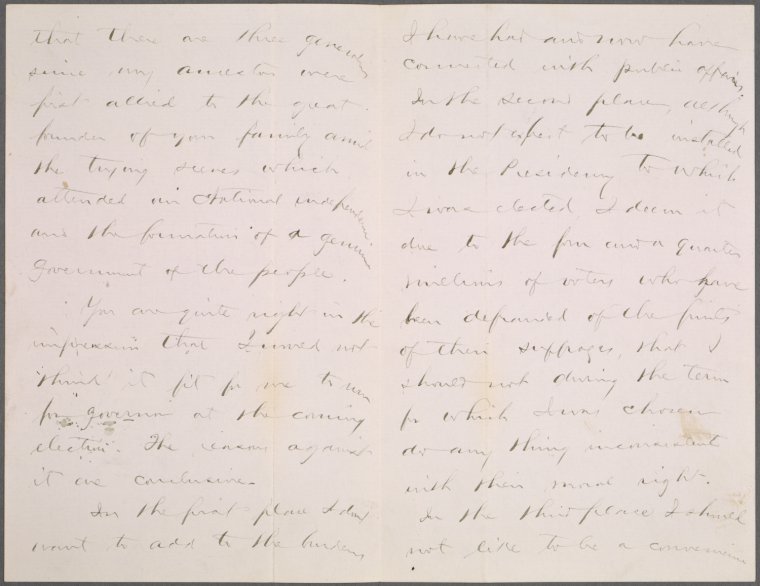 that there are three generations
since my ancestors were
first allied to the great
founder of your family amid
the trying scenes which
attended our National independence
and the formation of a genuine
Government of the people.
You are quite right in the
impression that I would not
think it fit for me to run
for governor at the coming
election. The reasons against
it are conclusive.
In the first place I don't
want to add to the burdens
I have had and now have
connected with public affairs.
In the second place, although
I do not expect to be installed
in the Presidency to which
I was elected, I deem it
due to the four and a quarter
millions of voters who have
been defrauded of the fruits
of their suffrages, that I
should not during the term
for which I was chosen
do any thing inconsistent
with their moral right.
In the third place I should
not like to be a convenience